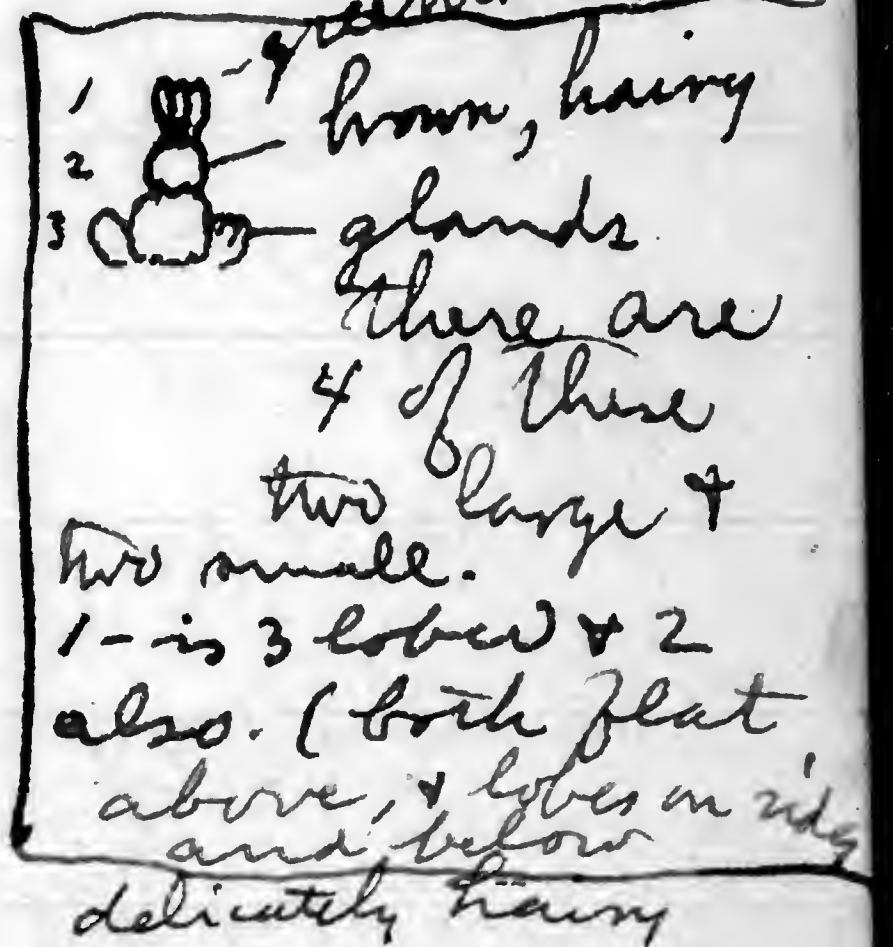 1
brown, hairy
2
3 glands
there are
4 of these
two large &
two small.
1 - is 3 lobed & 2
also. (both flat
above, & lobes on sides
and below
delicately hairy